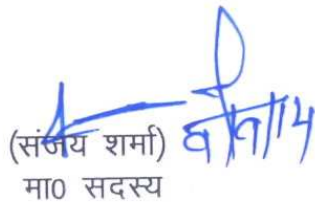 (संजय शर्मा)
मा0 सदस्य